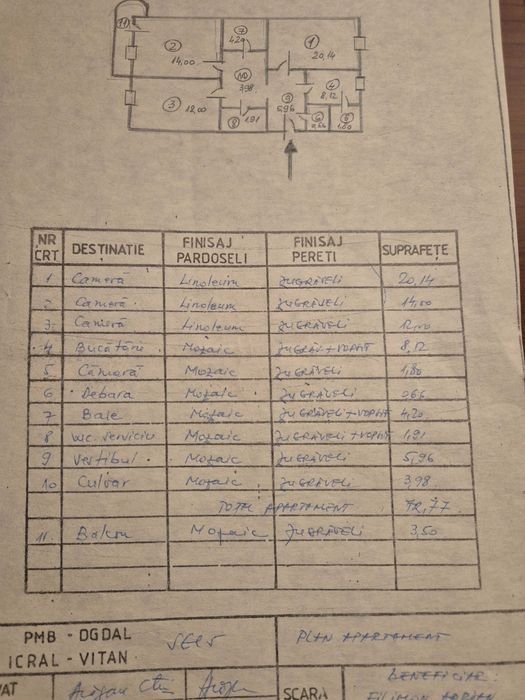 11
2
14,00
7
4,20
1
20,14
10
3,98
4
8,12
3
12,00
8
1,91
9
5,96
6
0,66
5
1,80
NR CRT DESTINATIE FINISAJ PARDOSELI FINISAJ PERETI SUPRAFEȚE
1 Cameră Linoleum ZUGRĂVELI 20,14
2 Cameră Linoleum ZUGRĂVELI 14,00
3 Cameră Linoleum ZUGRĂVELI 12,00
4 Bucătărie Mozaic ZUGRĂV+VOPSIT 8,12
5 Cămară Mozaic ZUGRĂVELI 1,80
6 Debara Mozaic ZUGRĂVELI 0,66
7 Baie Mozaic ZUGRĂVELI+VOPSIT 4,20
8 wc. serviciu Mozaic ZUGRĂVELI+VOPSIT 1,91
9 Vestibul Mozaic ZUGRĂVELI 5,96
10 Culoar Mozaic ZUGRĂVELI 3,98
TOTAL APARTAMENT 72,77
11 Balcon Mozaic ZUGRĂVELI 3,50
PMB - DGDAL
ICRAL - VITAN
PLAN APARTAMENT
SCARA
BENEFICIAR:
FILIMON ADRIAN